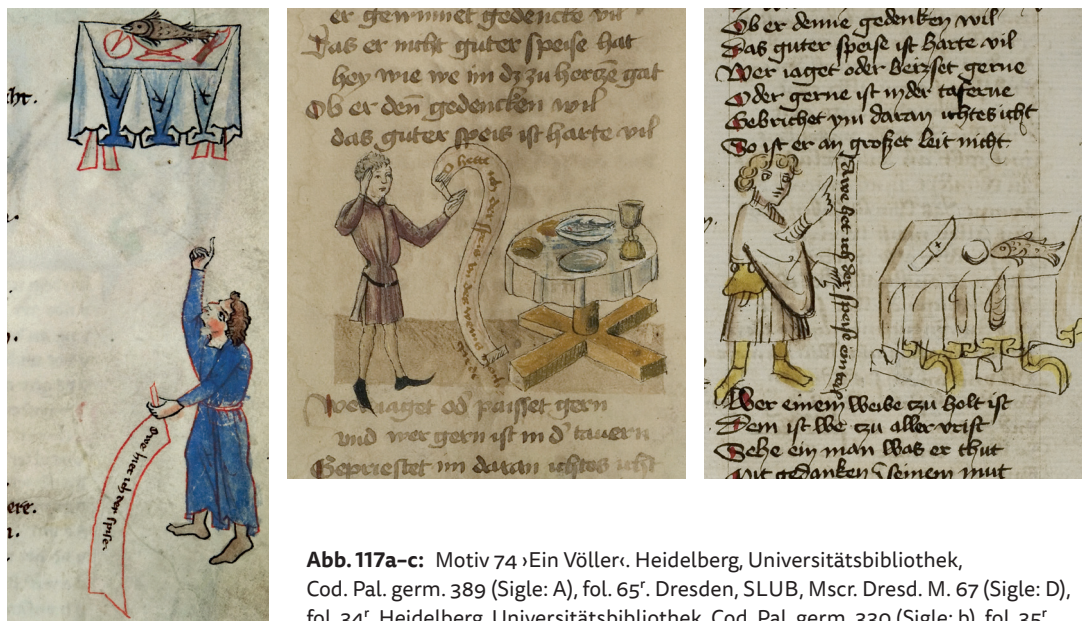 cht.
ere.
n.
owe hiet ich der spise
er gewinnet gedencke vil
Das er nicht guter speise hat
hey wie we im dz zu hertze gat
Ob er den gedencken wil
das guter speis ist harte vil
O hette ich der speis
Wer iaget od paisset gern
vnd wer gern ist in d' tauern
Gepristet im daran ichtes icht
Ob er denne gedenken wil
Das guter speise ist harte vil
Wer iaget oder beizset gerne
Oder gerne ist in der taferne
Gebrichet ym daran ichtes icht
So ist er an groszet leit nicht
we het ich der speise
Wer einem weibe czu holt ist
Dem ist we czu aller vrist
Sehe ein man was er thut
Mit gedanken seinem mut
Abb. 117a–c: Motiv 74 ›Ein Völler‹. Heidelberg, Universitätsbibliothek,
Cod. Pal. germ. 389 (Sigle: A), fol. 65ʳ. Dresden, SLUB, Mscr. Dresd. M. 67 (Sigle: D),
fol. 34ʳ. Heidelberg, Universitätsbibliothek, Cod. Pal. germ. 330 (Sigle: b), fol. 35ʳ